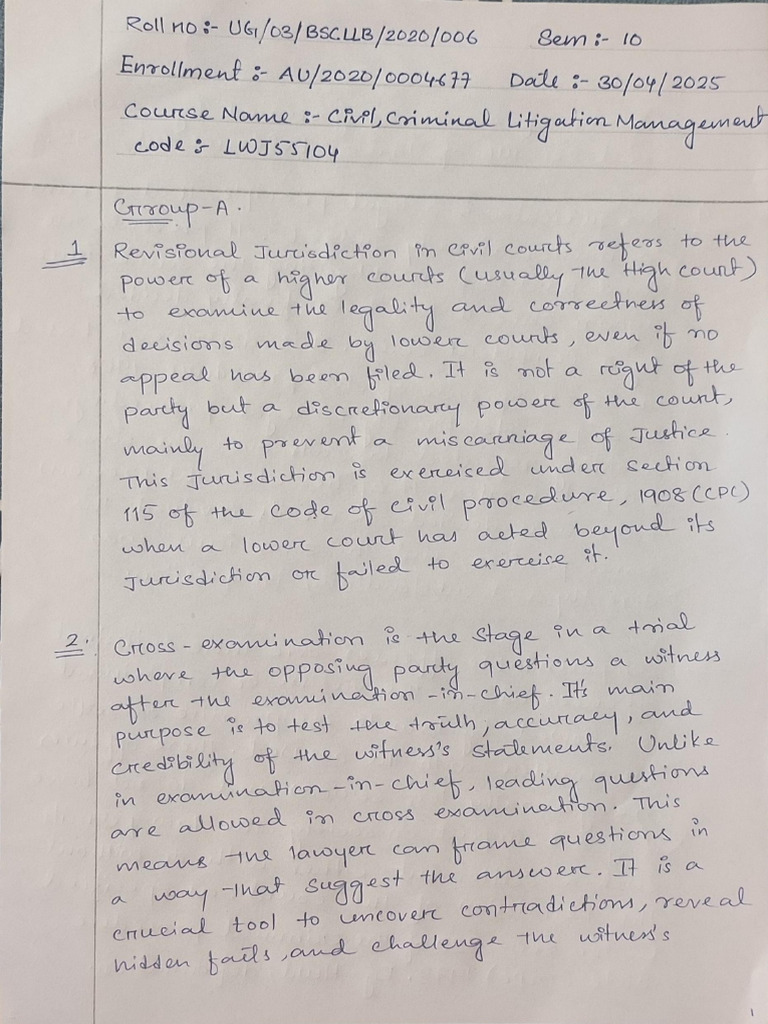 Roll no :- UG/03/BSCLLB/2020/006 Sem :- 10
Enrollment :- AU/2020/0004677 Date :- 30/04/2025
Course Name :- Civil, Criminal Litigation Management
code :- LWJ55104
Group-A.
1 Revisional Jurisdiction in civil courts refers to the
power of a higher courts (usually the High court)
to examine the legality and correctness of
decisions made by lower courts, even if no
appeal has been filed. It is not a right of the
party but a discretionary power of the court,
mainly to prevent a miscarriage of Justice.
This Jurisdiction is exercised under section
115 of the code of civil procedure, 1908 (CPC)
when a lower court has acted beyond its
Jurisdiction or failed to exercise it.
2. Cross-examination is the stage in a trial
where the opposing party questions a witness
after the examination-in-chief. It's main
purpose is to test the truth, accuracy, and
credibility of the witness's statements. Unlike
in examination-in-chief, leading questions
are allowed in cross examination. This
means the lawyer can frame questions in
a way that suggest the answer. It is a
crucial tool to uncover contradictions, reveal
hidden fails, and challenge the witness's
1